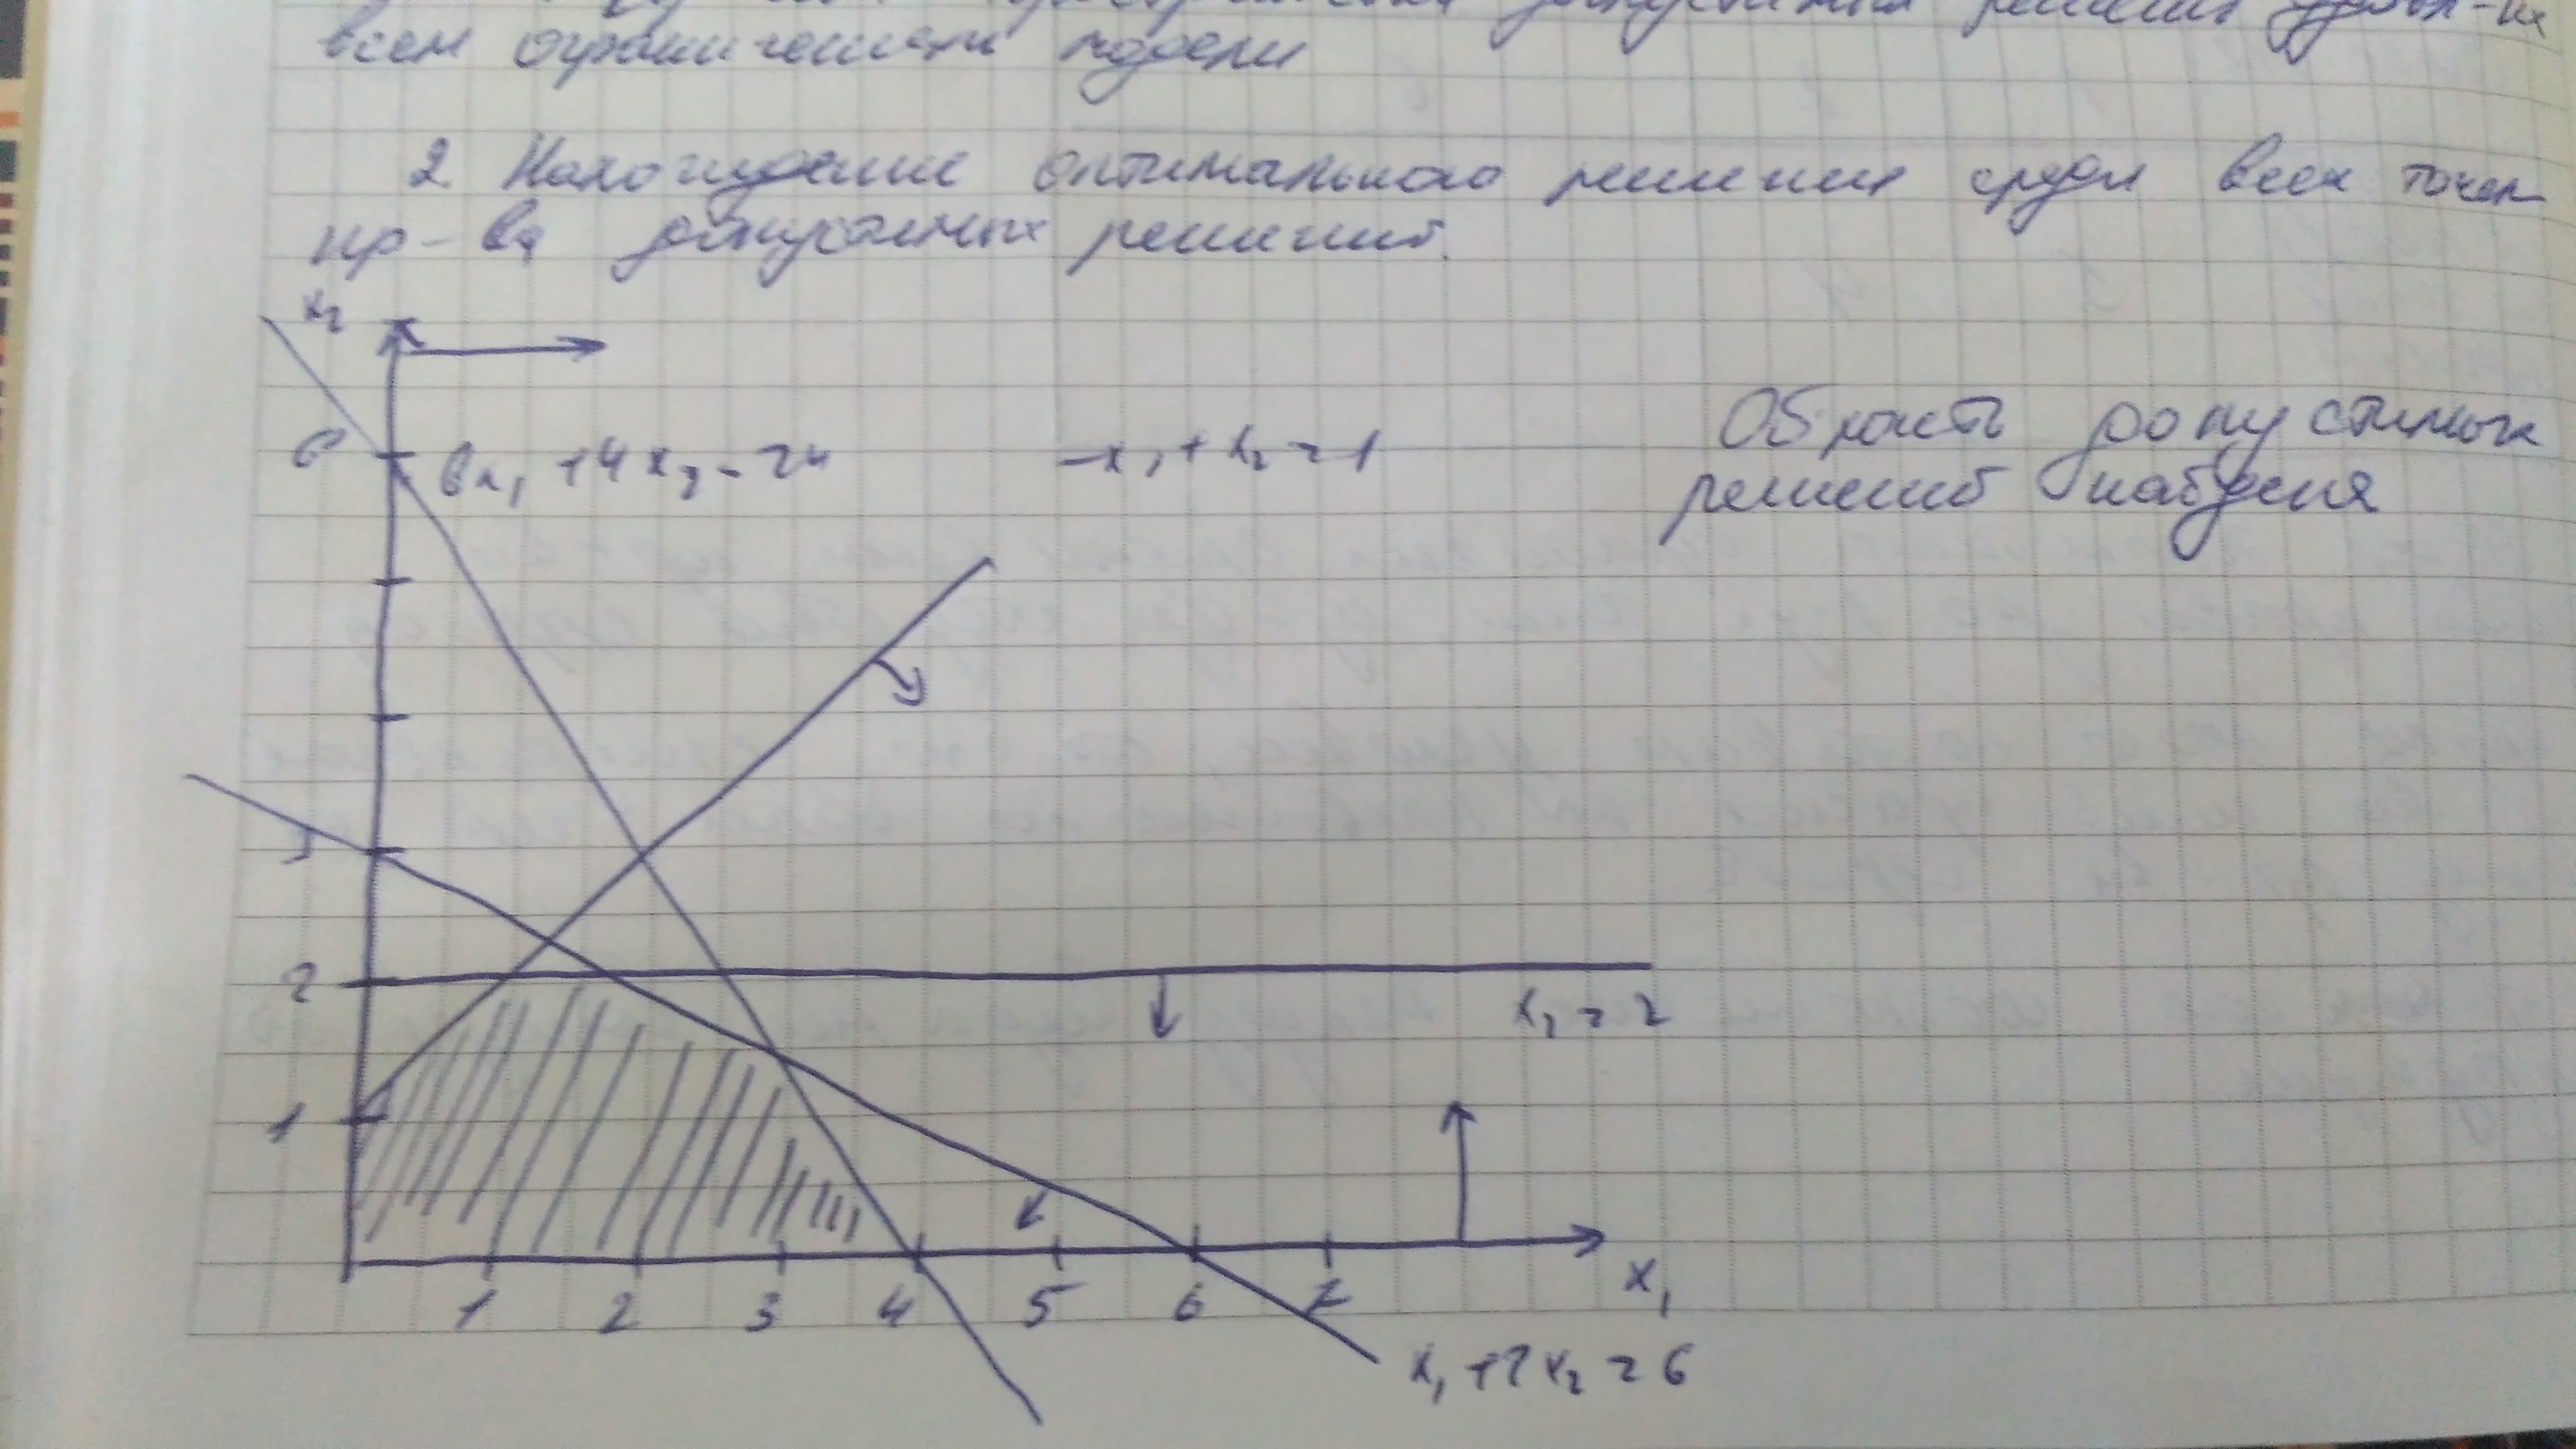 допустимых решений
всем ограничениям модели
2. Нахождение оптимального решения среди всех точек
пр-ва допустимых решений.
x₂
6
6x₁ + 4x₂ = 24
-x₁ + x₂ = 1
Область допустимых
решений найдена
3
2
x₂ = 2
1
1 2 3 4 5 6 7
x₁
x₁ + 2x₂ = 6